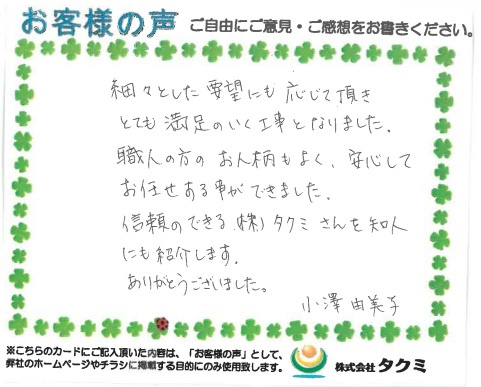 お客様の声 ご自由にご意見・ご感想をお書きください。
細々とした要望にも応じて頂き
とても満足のいく工事となりました。
職人の方のお人柄もよく、安心して
お任せある事ができました。
信頼のできる(株)タクミさんを知人
にも紹介します。
ありがとうございました。
小澤由美子
※こちらのカードにご記入頂いた内容は、「お客様の声」として、
弊社のホームページやチラシに掲載する目的にのみ使用致します。
株式会社タクミ